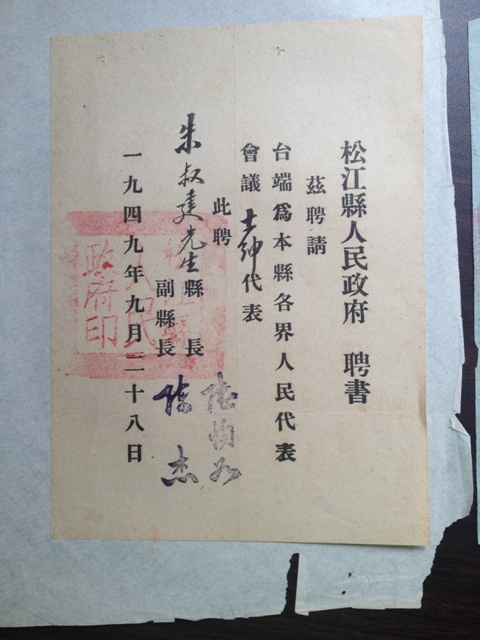 松江縣人民政府 聘書
茲聘請
台端爲本縣各界人民代表
會議士紳代表
此聘
朱叔建先生
縣長 陸
副縣長 陳杰
一九四九年九月二十八日
人民
政府印